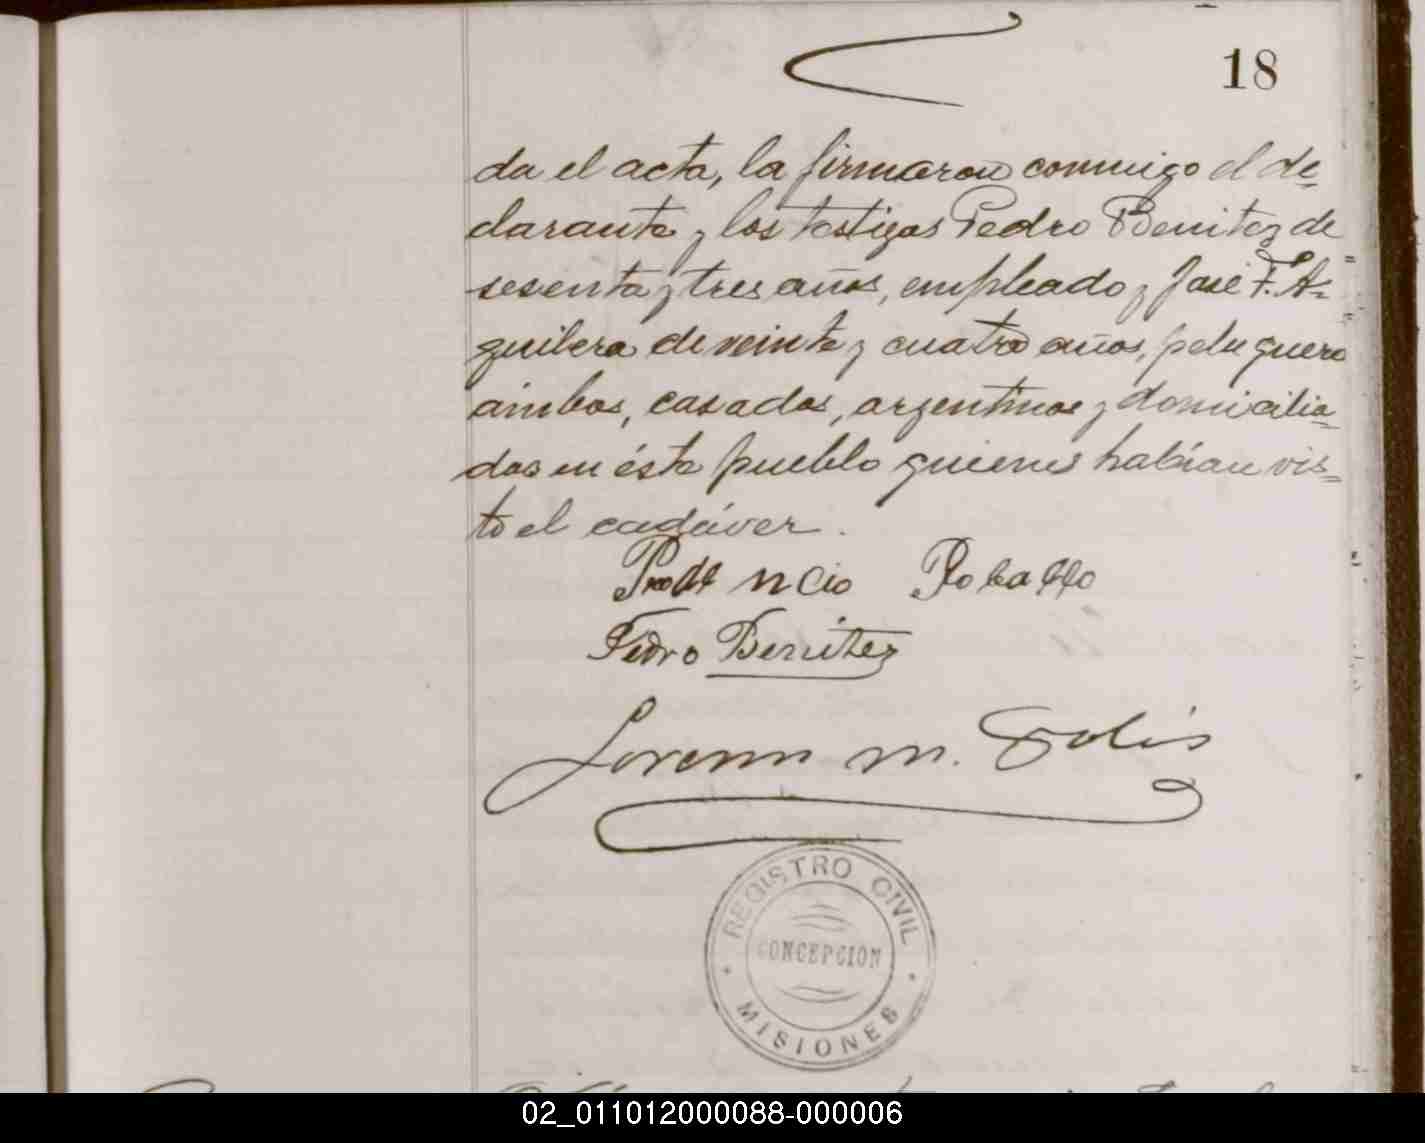 18
da el acta, la firmaron conmigo el de=
clarante y los testigos Pedro Benitez de
sesenta y tres años, empleado y José F. A=
guilera de veinte y cuatro años, peluquero
ambos, casados, argentinos y domicilia=
dos en ésta pueblo quienes habían vis=
to el cadáver.
Pedro Benitez
m. Solis
REGISTRO CIVIL
CONCEPCION
MISIONES
02_011012000088-000006